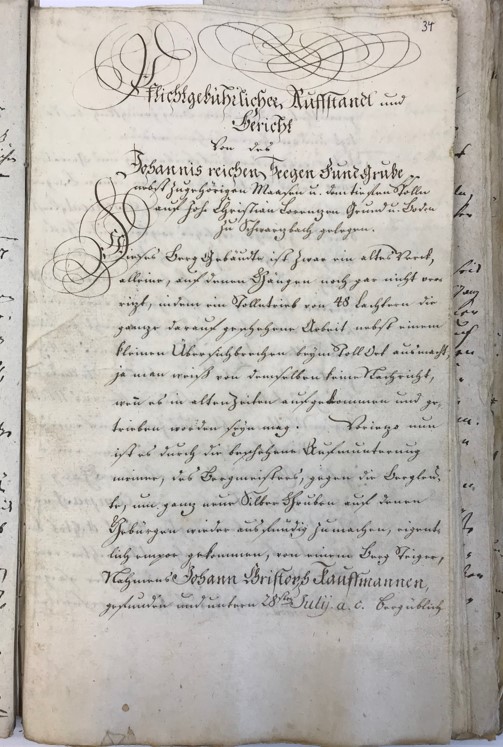 34
Pflichtgebührlicher Auffstandt und
Bericht
Von der
Johannis reichen Seegen Fundgrube
nebst zugehörigen Maasen u. dem tieffen Stolln
auf Hrn. Christian Lorentzen Grund u. Boden
zu Schwarzbach gelegen.
Dieses Berg Gebäude ist zwar ein altes Werck,
alleine, auf denen Gängen noch gar nicht ver-
ritzt, indem ein Stolln trieb von 48 Lachtern die
gantze darauf geschehene Arbeit nebst einem
kleinen Übersichbrechen beym Stoll Ort ausmacht,
ja man weiß von demselben keine Nachricht,
wenn es in alten Zeiten aufgekommen und ge-
trieben worden seyn mag. Vorjezo nun
ist es durch die beschehene Aufmunterung
meiner, des Bergmeisters, gegen die Bergleu-
te, um gantz neue Silber Gruben auf denen
Gebürgen wieder ausfündig zu machen, eigent-
lich empor gekommen, von einem Berg Steiger,
Nahmens Johann Christoph Kauffmannen,
gefunden und unterm 28sten Julij a. c. bergüblich